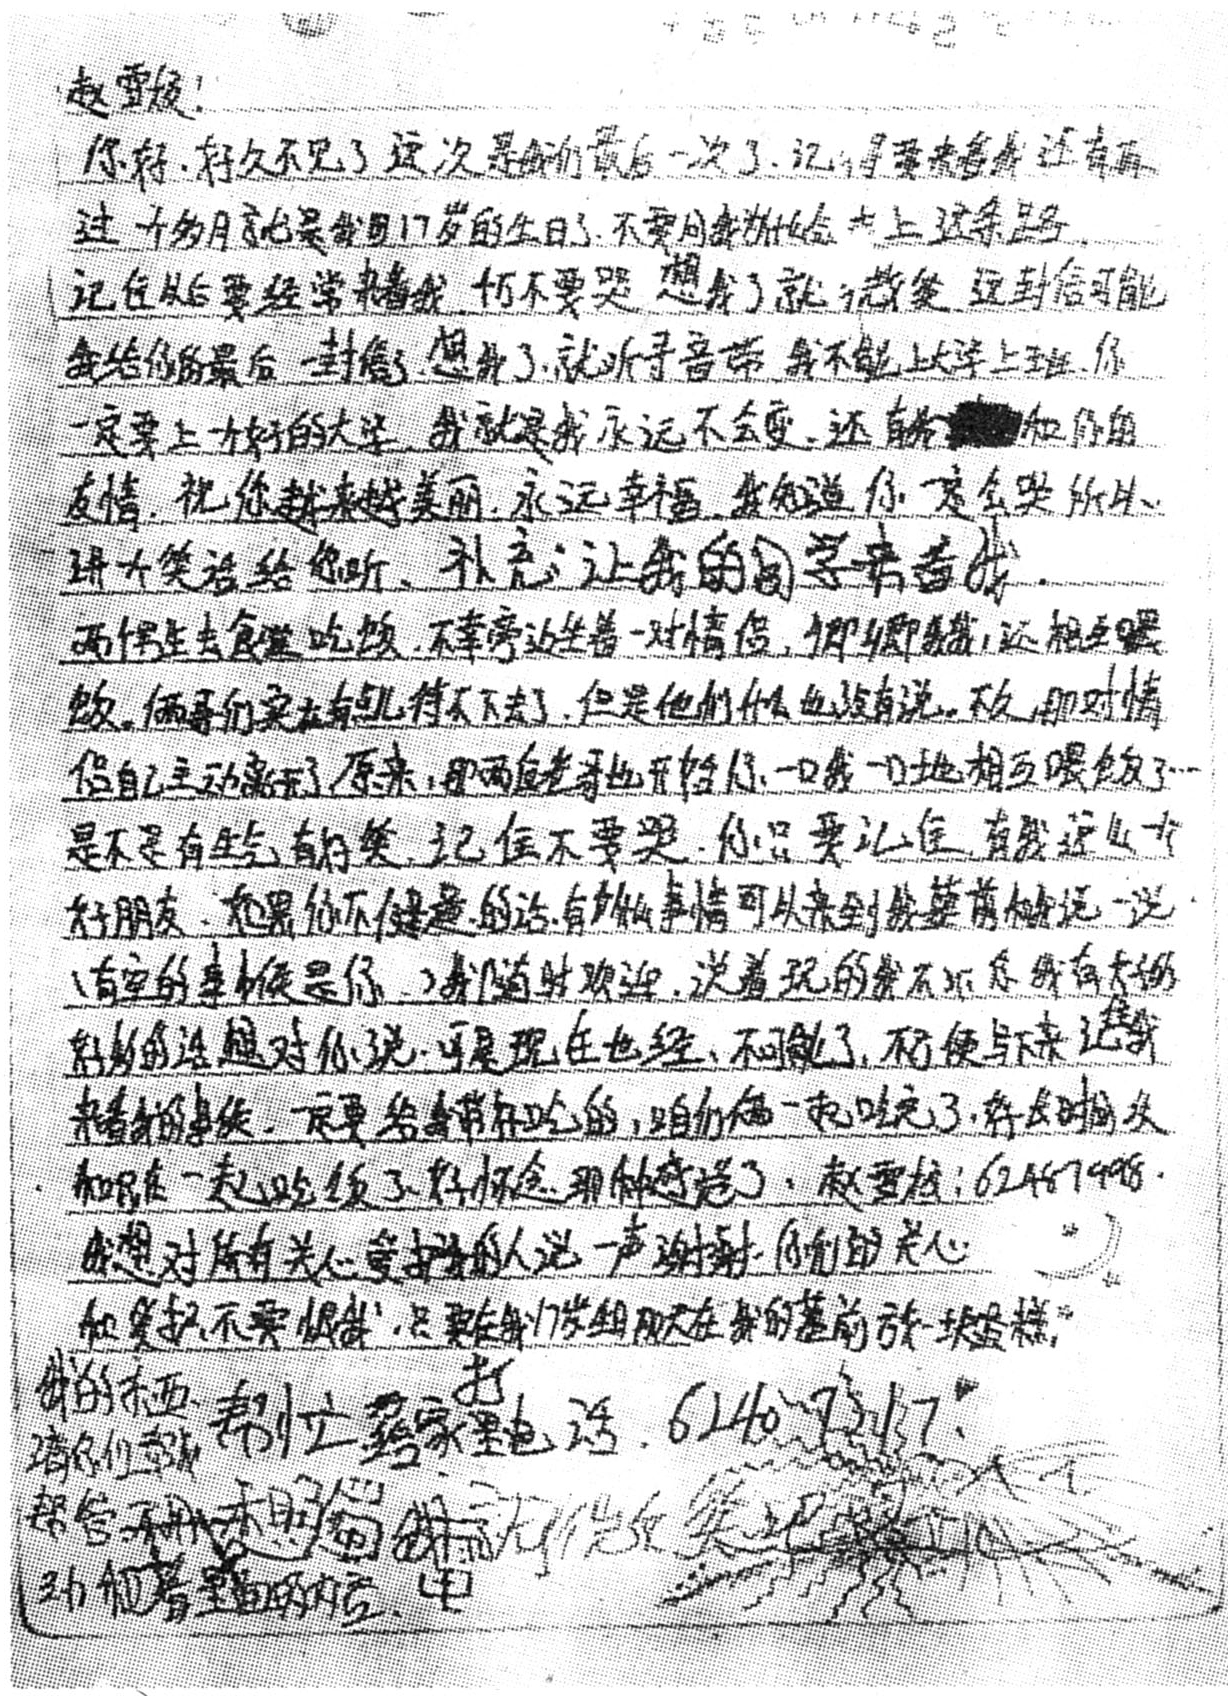 赵雪
你好。好久不见了 这次是我们最后一次了。记得要来看我 还有再
过 个多月就是我17岁的生日了。不要问我为什么会 上这条路。
记住以后要经常来看我 千万不要哭 想我了就微笑 这封信可能
我给你的最后一封信了。想我了。就听寻音带 我不能上大学上班。你
一定要上个好的大学。我就是我 永远不会变。还有 和你的
友情。祝你越来越美丽。永远幸福。我知道你一定会哭 所以、
讲个笑话给你听。补充：让我的同学来看我。
两个男生去食堂吃饭。不幸旁边坐着一对情侣，卿卿我我，还相互喂
饭。俩哥们实在有点儿待不下去了。但是他们什么也没有说。不久，那对情
侣自己主动离开了 原来，那两位老哥也开始你一口我一口地相互喂饭了…
是不是有生气 有好笑。记住不要哭。你只要记住 有我这么个
好朋友。如果你不健 的话。有什么事情可以来到我墓前和我说一说。
（有空的事候是你、）我随时欢迎。说着玩的我不 我有太多的
的话想对你说。可是现在已经、不可能了。不方便写下来 让我
来看我的事候。一定要给我带好吃的，咱们俩一起吃完了。好长时间没
和 在一起吃饭了、好怀念那种感觉了。赵雪 ：62467998.
我想对所有关心爱护我的人说一声谢谢 你们的关心
和爱护、不要恨我。只要在我17岁生日那天在我的墓前放一块蛋糕。
我的东西、
帮忙 家里打电话. 6240
请你们
帮 我
动 看里面的内容、